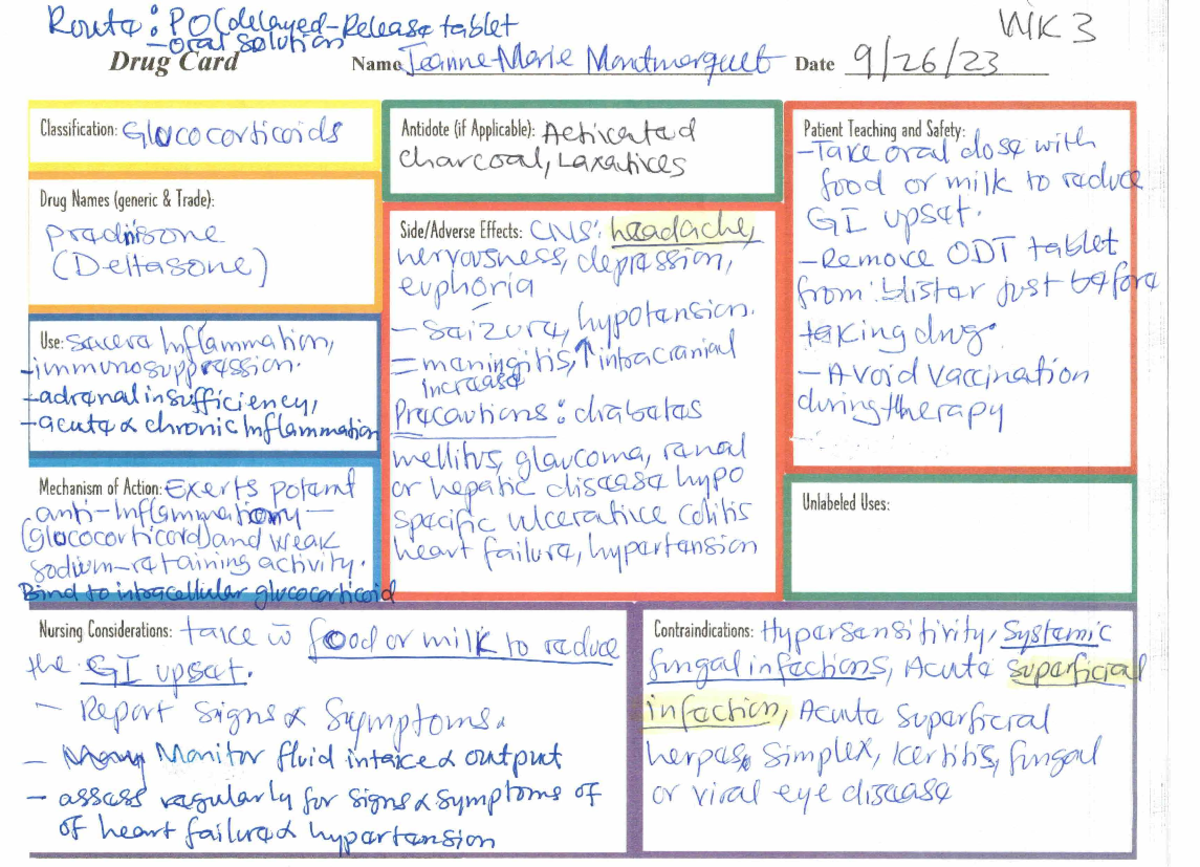 Route: PO (delayed-Release tablet
- oral solution
WK 3
Drug Card Name Jeanne-Marie Montmarquet Date 9/26/23
Classification: Glucocorticoids
Drug Names (generic & Trade):
prednisone
(Deltasone)
Use: severe Inflammation,
- immunosuppression.
- adrenal insufficiency,
- acute & chronic Inflammation
Mechanism of Action: Exerts potent
anti-Inflammatory -
(glucocorticord) and weak
sodium-retaining activity.
Bind to intracellular glucocorticoid
Antidote (if Applicable): Activated
charcoal, Laxatices
Side/Adverse Effects: CNS: headache,
nervousness, depression,
euphoria
- Seizure, hypotension.
= meningitis, ↑ intracranial
Increase
Precautions: diabetes
mellitus, glaucoma, renal
or hepatic disease hypo
specific ulceratice colitis
heart failure, hypertension
Patient Teaching and Safety:
- Take oral dose with
food or milk to reduce
GI upset.
- Remove ODT tablet
from blister just before
taking drug.
- Avoid vaccination
during therapy
Unlabeled Uses:
Nursing Considerations: take w̄ food or milk to reduce
the GI upset.
- Report signs & symptoms.
- Monitor fluid intake & output
- assess regularly for signs & symptoms of
of heart failure & hypertension
Contraindications: Hypersensitivity, Systemic
fungal infections, Acute superficial
infection, Acute superficral
herpes, simplex, kertitis, fungal
or viral eye disease